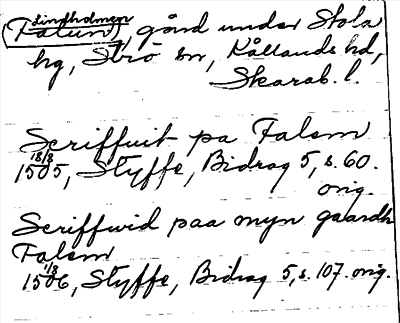 Lindholmen
(Falum), gård under Stola
hg, Strö sn, Kållands hd,
Skarab. l.
Scriffuit pa Falem
18/8
1505, Styffe, Bidrag 5, s. 60.
orig.
Scriffwid paa myn gaardh
Falem
1/8
1506, Styffe, Bidrag 5, s. 107. orig.